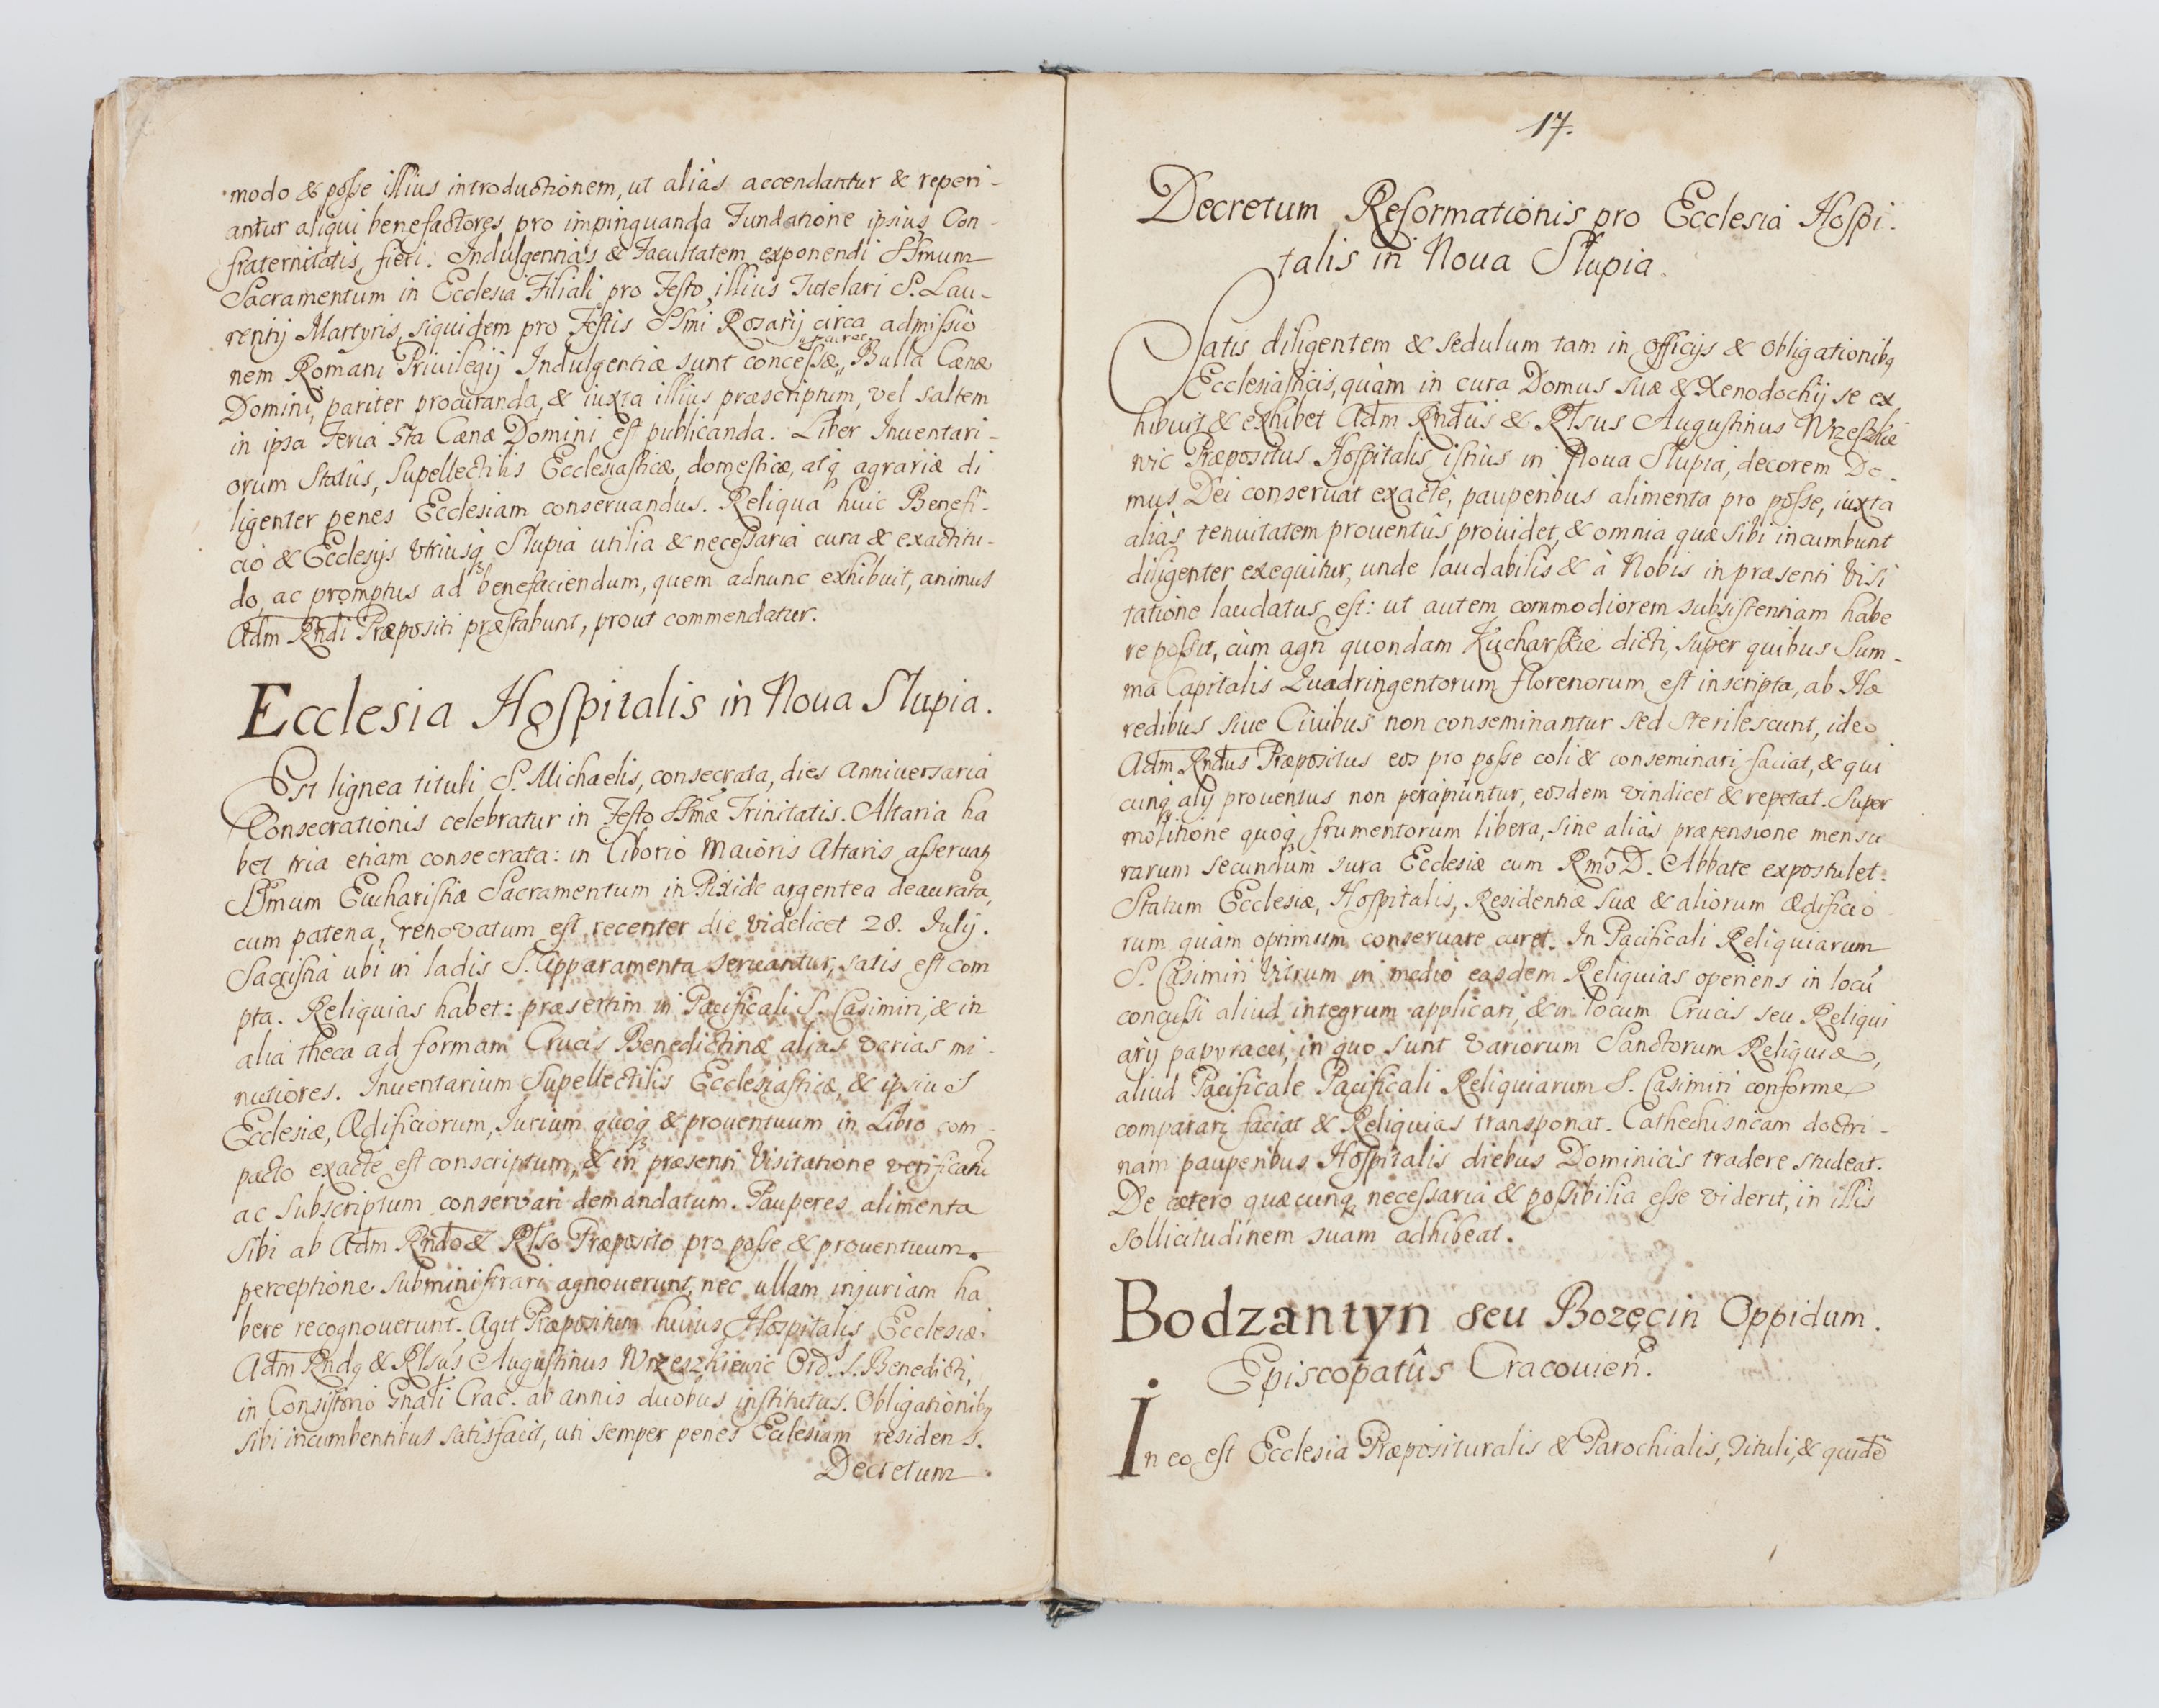 modo & posse illius introductionem, ut aliàs accendantur & reperi-
antur aliqui benefactores pro impinguanda Fundatione ipsius Con-
fraternitatis, fieri. Indulgentias & Facultatem exponendi SSmum
Sacramentum in Ecclesia Filiali pro Festo illius Tutelari S. Lau-
rentij Martyris, siquidem pro Festis SSmi Rosarij circa admissio
nem Romani Privilegij Indulgentiæ sunt concessæ, Bulla Cænæ
Domini, pariter procuranda, & iuxta illius præscriptum, vel saltem
in ipsa Feria 5ta Cænæ Domini est publicanda. Liber Inventari-
orum Statûs, Supellectilis Ecclesiasticæ, domesticæ, atq agrariæ di
ligenter penes Ecclesiam conseruandus. Reliqua huic Benefi-
cio & Ecclesijs Vtriusq Slupia utilia & necessaria cura & exactitu-
do, ac promptus ad benefaciendum, quem adnunc exhibuit, animus
Adm Rndi Præpositi præstabunt, prout commendatur.
Ecclesia Hospitalis in Noua Slupia.
Est lignea tituli S. Michaelis, consecrata, dies Anniuersaria
Consecrationis celebratur in Festo SSmæ Trinitatis. Altaria ha
bet tria etiam consecrata: in Ciborio Maioris Altaris asseruatr
SSmum Eucharistiæ Sacramentum in Pixide argentea deaurata,
cum patena, renovatum est recenter die videlicet 28. Iulij.
Sacristia ubi in ladis S. Apparamenta seruantur, satis est com
pta. Reliquias habet: præsertim in Pacificali S. Casimiri, & in
alia theca ad formam Crucis Benedictinæ alias varias mi-
nutiores. Inuentarium Supellectilis Ecclesiasticæ, & ipsius
Ecclesiæ, Ædificiorum, Iurium quoq & prouentuum in Libro com-
pacto exactè est conscriptum, & in præsenti Visitatione verificatū
ac subscriptum conservari demandatum. Pauperes alimenta
sibi ab Adm Rndo & Rlso Præposito pro posse & prouentuum
perceptione subministrari agnouerunt, nec ullam injuriam ha
bere recognouerunt. Agit Præpositum huius Hospitalis Ecclesiæ
Adm Rndq & Rlsus Augustinus Wrzeszkiewic Ord. S. Benedicti,
in Consistorio Gnali Crac. ab annis duobus institutus. Obligationibq
sibi incumbentibus satisfacit, uti semper penes Ecclesiam residens.
Decretum
17.
Decretum Reformationis pro Ecclesia Hospi-
talis in Noua Slupia.
Satis diligentem & sedulum tam in officijs & obligationibq
Ecclesiasticis, quàm in cura Domus suæ & Xenodochij se ex
hibuit & exhibet Adm Rndus & Rlsus Augustinus Wrzeszkie
wic Præpositus Hospitalis istius in Noua Slupia, decorem Do-
mus Dei conseruat exactè, pauperibus alimenta pro posse, iuxta
aliàs tenuitatem prouentûs prouidet, & omnia quæ sibi incumbunt
diligenter exequitur, unde laudabilis & à Nobis in præsenti Visi
tatione laudatus est: ut autem commodiorem subsistentiam habe
re possit, cùm agri quondam Kucharskie dicti, super quibus Sum-
ma Capitalis Quadringentorum florenorum est inscripta, ab Hæ
redibus siue Ciuibus non conseminantur sed sterilescunt, ideo
Adm Rndus Præpositus eos pro posse coli & conseminari faciat, & qui
cunq alij prouentus non percipiuntur, eosdem vindicet & repetat. Super
molitione quoq frumentorum libera, sine aliàs prætensione mensu
rarum secundum iura Ecclesiæ cum Rmo D. Abbate expostulet.
Statum Ecclesiæ, Hospitalis, Residentiæ suæ & aliorum ædificio
rum quàm optimum conseruare curet. In Pacificali Reliquiarum
S. Casimiri Vitrum in medio easdem Reliquias operiens in locū
concussi aliud integrum applicari, & in locum Crucis seu Reliqui
arij papyracei, in quo sunt variorum Sanctorum Reliquiæ,
aliud Pacificale Pacificali Reliquiarum S. Casimiri conforme
comparari faciat & Reliquias transponat. Cathechisticam doctri-
nam pauperibus Hospitalis diebus Dominicis tradere studeat.
De cætero quæcunq necessaria & possibilia esse viderit, in illis
sollicitudinem suam adhibeat.
Bodzantyn seu Bozęcin Oppidum.
Episcopatûs Cracouien.
In eo est Ecclesia Præposituralis & Parochialis, Tituli, & quidē